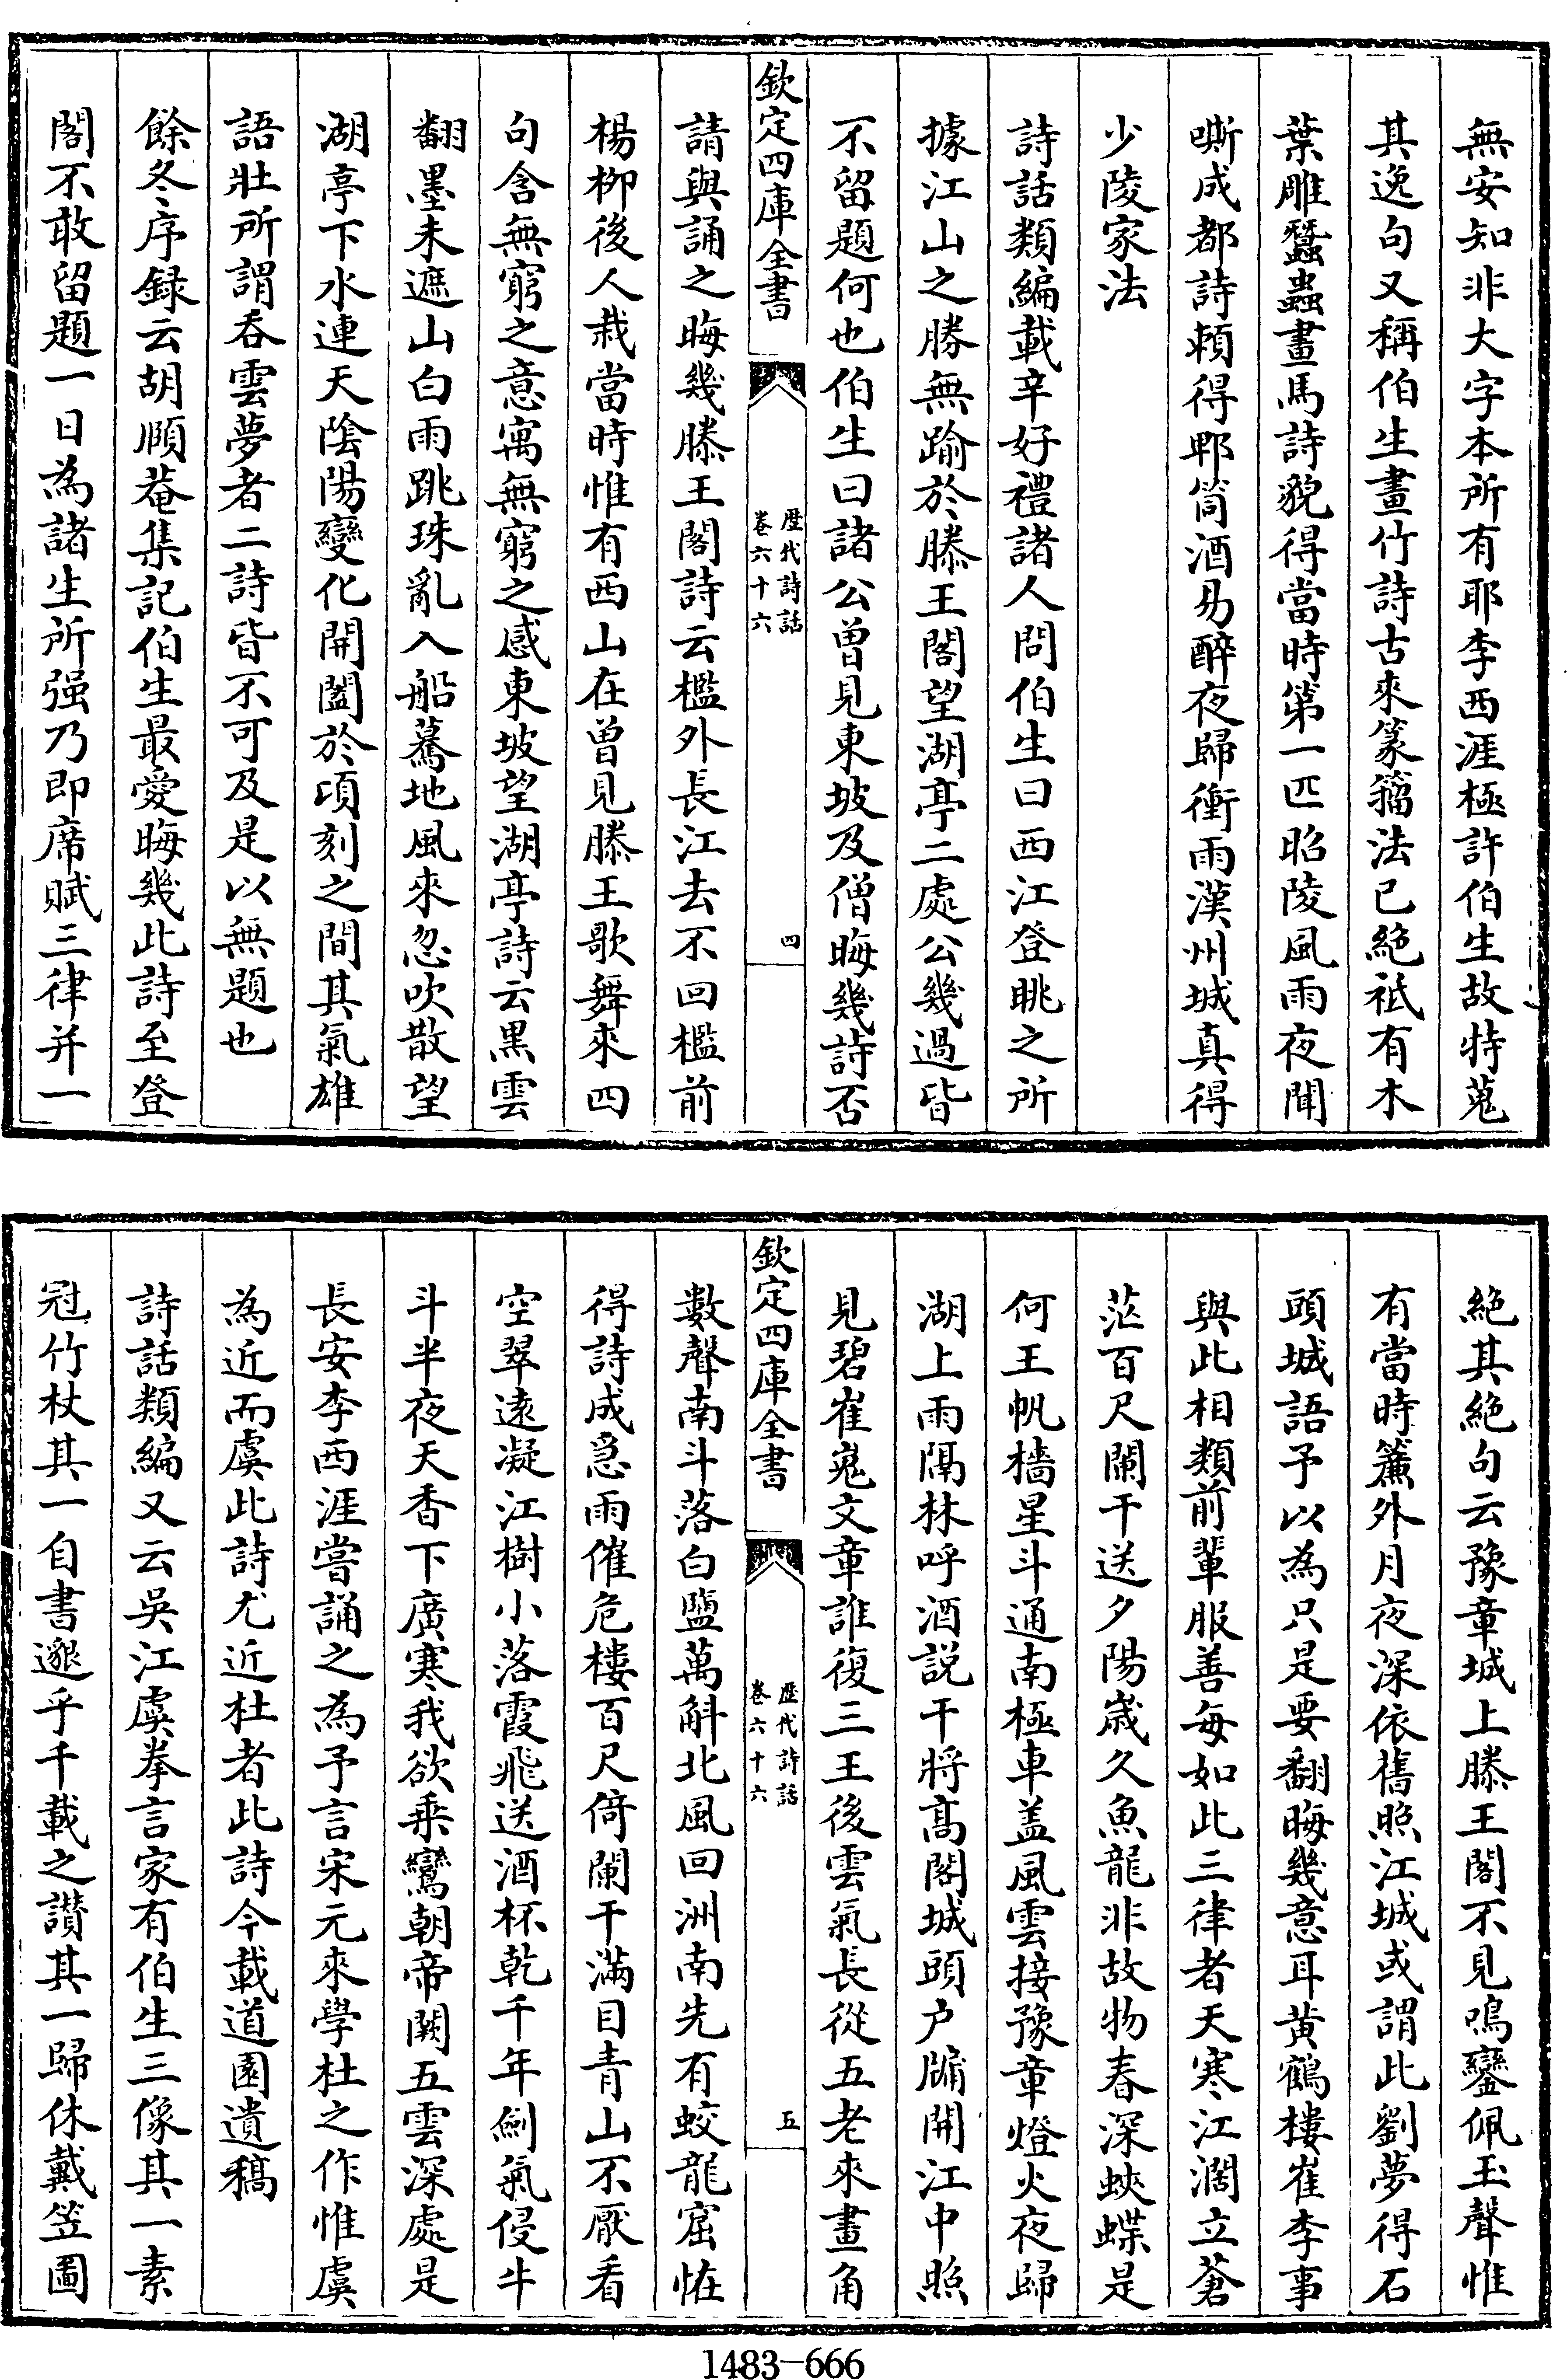 無安知非大字本所有耶李西涯極許伯生故特蒐
其逸句又稱伯生畫竹詩古來篆籀法已絶祗有木
葉雕蠶蟲畫馬詩貌得當時第一匹昭陵風雨夜聞
嘶成都詩頼得郫筒酒易醉夜歸衝雨漢州城真得
少陵家法
詩話類編載辛好禮諸人問伯生曰西江登眺之所
據江山之勝無踰於滕王閣望湖亭二處公幾過皆
不留題何也伯生曰諸公曽見東坡及僧晦幾詩否
欽定四庫全書
歴代詩話
卷六十六
四
請與誦之晦幾滕王閣詩云檻外長江去不回檻前
楊柳後人栽當時惟有西山在曽見滕王歌舞來四
句含無窮之意寓無窮之感東坡望湖亭詩云黒雲
翻墨未遮山白雨跳珠亂入船驀地風來忽吹散望
湖亭下水連天陰陽變化開闔於頃刻之間其氣雄
語壯所謂吞雲夢者二詩皆不可及是以無題也
餘冬序録云胡頤菴集記伯生最愛晦幾此詩至登
閣不敢留題一日為諸生所强乃即席賦三律并一
絶其絶句云豫章城上滕王閣不見鳴鑾佩玉聲惟
有當時簾外月夜深依舊照江城或謂此劉夢得石
頭城語予以為只是要翻晦幾意耳黄鶴樓崔李事
與此相類前輩服善每如此三律者天寒江濶立蒼
茫百尺闌干送夕陽嵗久魚龍非故物春深蛺蝶是
何王帆檣星斗通南極車盖風雲接豫章燈火夜歸
湖上雨隔林呼酒説干將髙閣城頭户牖開江中照
見碧崔嵬文章誰復三王後雲氣長從五老來畫角
欽定四庫全書
歴代詩話
卷六十六
五
數聲南斗落白鹽萬斛北風回洲南先有蛟龍窟恠
得詩成急雨催危樓百尺倚闌干滿目青山不厭看
空翠遠凝江樹小落霞飛送酒杯乾千年劍氣侵牛
斗半夜天香下廣寒我欲乗鸞朝帝闕五雲深處是
長安李西涯嘗誦之為予言宋元來學杜之作惟虞
為近而虞此詩尤近杜者此詩今載道園遺稿
詩話類編又云吳江虞拳言家有伯生三像其一素
冠竹杖其一自書邈乎千載之讃其一歸休戴笠圖
1483—666